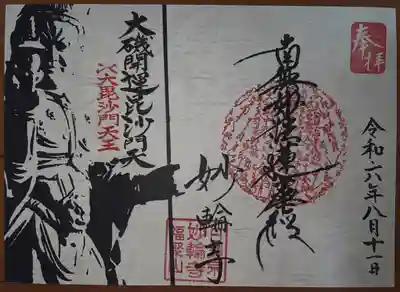 奉拝
令和六年八月十一日
南無妙法蓮華経
妙輪寺
大磯開運毘沙門天
大毘沙門天王